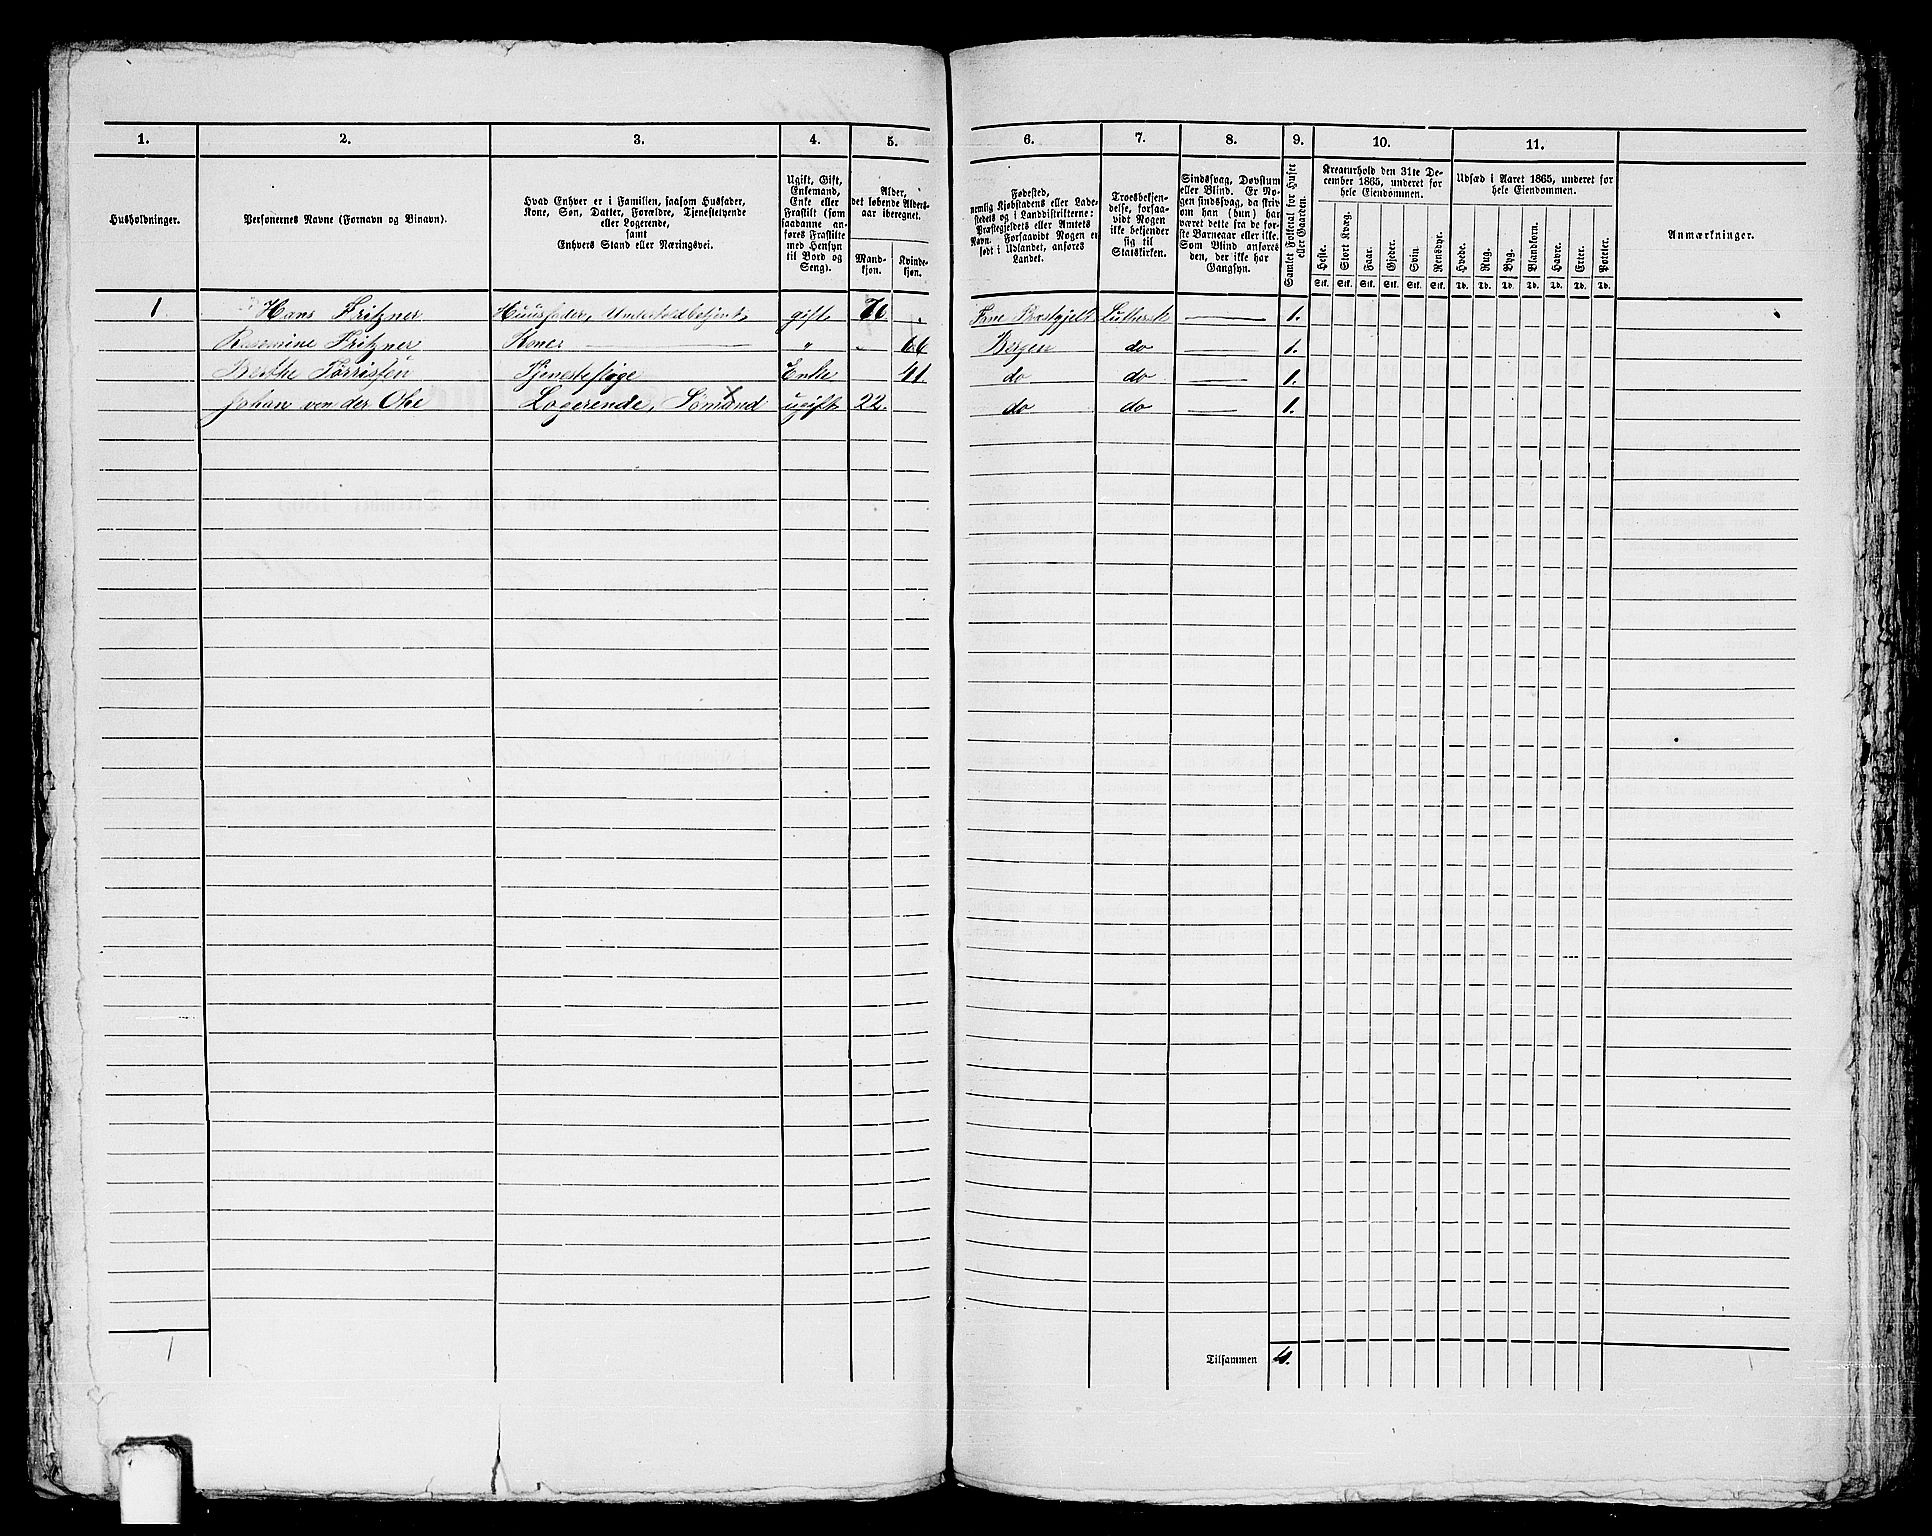 1.
2.
3.
4.
5.
6.
7.
8.
9.
10.
11.
Husholdninger.
Personernes Navne (Fornavn og Binavn).
Hvad Enhver er i Familien, saasom Husfader,
Kone, Søn, Datter, Forældre, Tjenestetyende
eller Logerende,
samt
Enhvers Stand eller Næringsvei.
Ugift, Gift,
Enkemand,
Enke eller
Fraskilt (som
saadanne an-
føres Fraskilte
med Hensyn
til Bord og
Seng).
Alder,
det løbende Alders-
aar iberegnet.
Mand-
kjøn.
Kvinde-
kjøn.
Fødested,
nemlig Kjøbstadens eller Lade-
stedets og i Landdistrikterne:
Præstegjeldets eller Amtets
Navn. Forsaavidt Nogen er
født i Udlandet, anføres
Landet.
Troesbekjen-
delse, forsaa-
vidt Nogen
ikke bekjender
sig til
Statskirken.
Sindssvag, Døvstum
eller Blind. Er No-
gen sindssvag, da skriv
om han (hun) har
været dette fra de før-
ste Barneaar eller ikke.
Som Blind anføres
den, der ikke har
Gangsyn.
Samlet Folketal for Huset
eller Gaarden.
Kreaturhold den 31te De-
cember 1865, underet for
hele Eiendommen.
Heste.
Stort Kvæg.
Faar.
Gjeder.
Svin.
Rensdyr.
Stk. Stk. Stk. Stk. Stk. Stk.
Udsæd i Aaret 1865, underet for
hele Eiendommen.
Hvede.
Rug.
Byg.
Blandkorn.
Havre.
Erter.
Poteter.
Td. Td. Td. Td. Td. Td. Td.
Anmærkninger.
1 Hans Fritzner Huusfader, gift 71 . Luthersk 1.
Fritzner Kone " . 66 Bergen do 1.
Berthe Torrissen Tjenestepige Enke 41. do do 1.
Johan von der Ohe Logerende, Sømand ugift 22. do do 1.
1
Tilsammen 4.